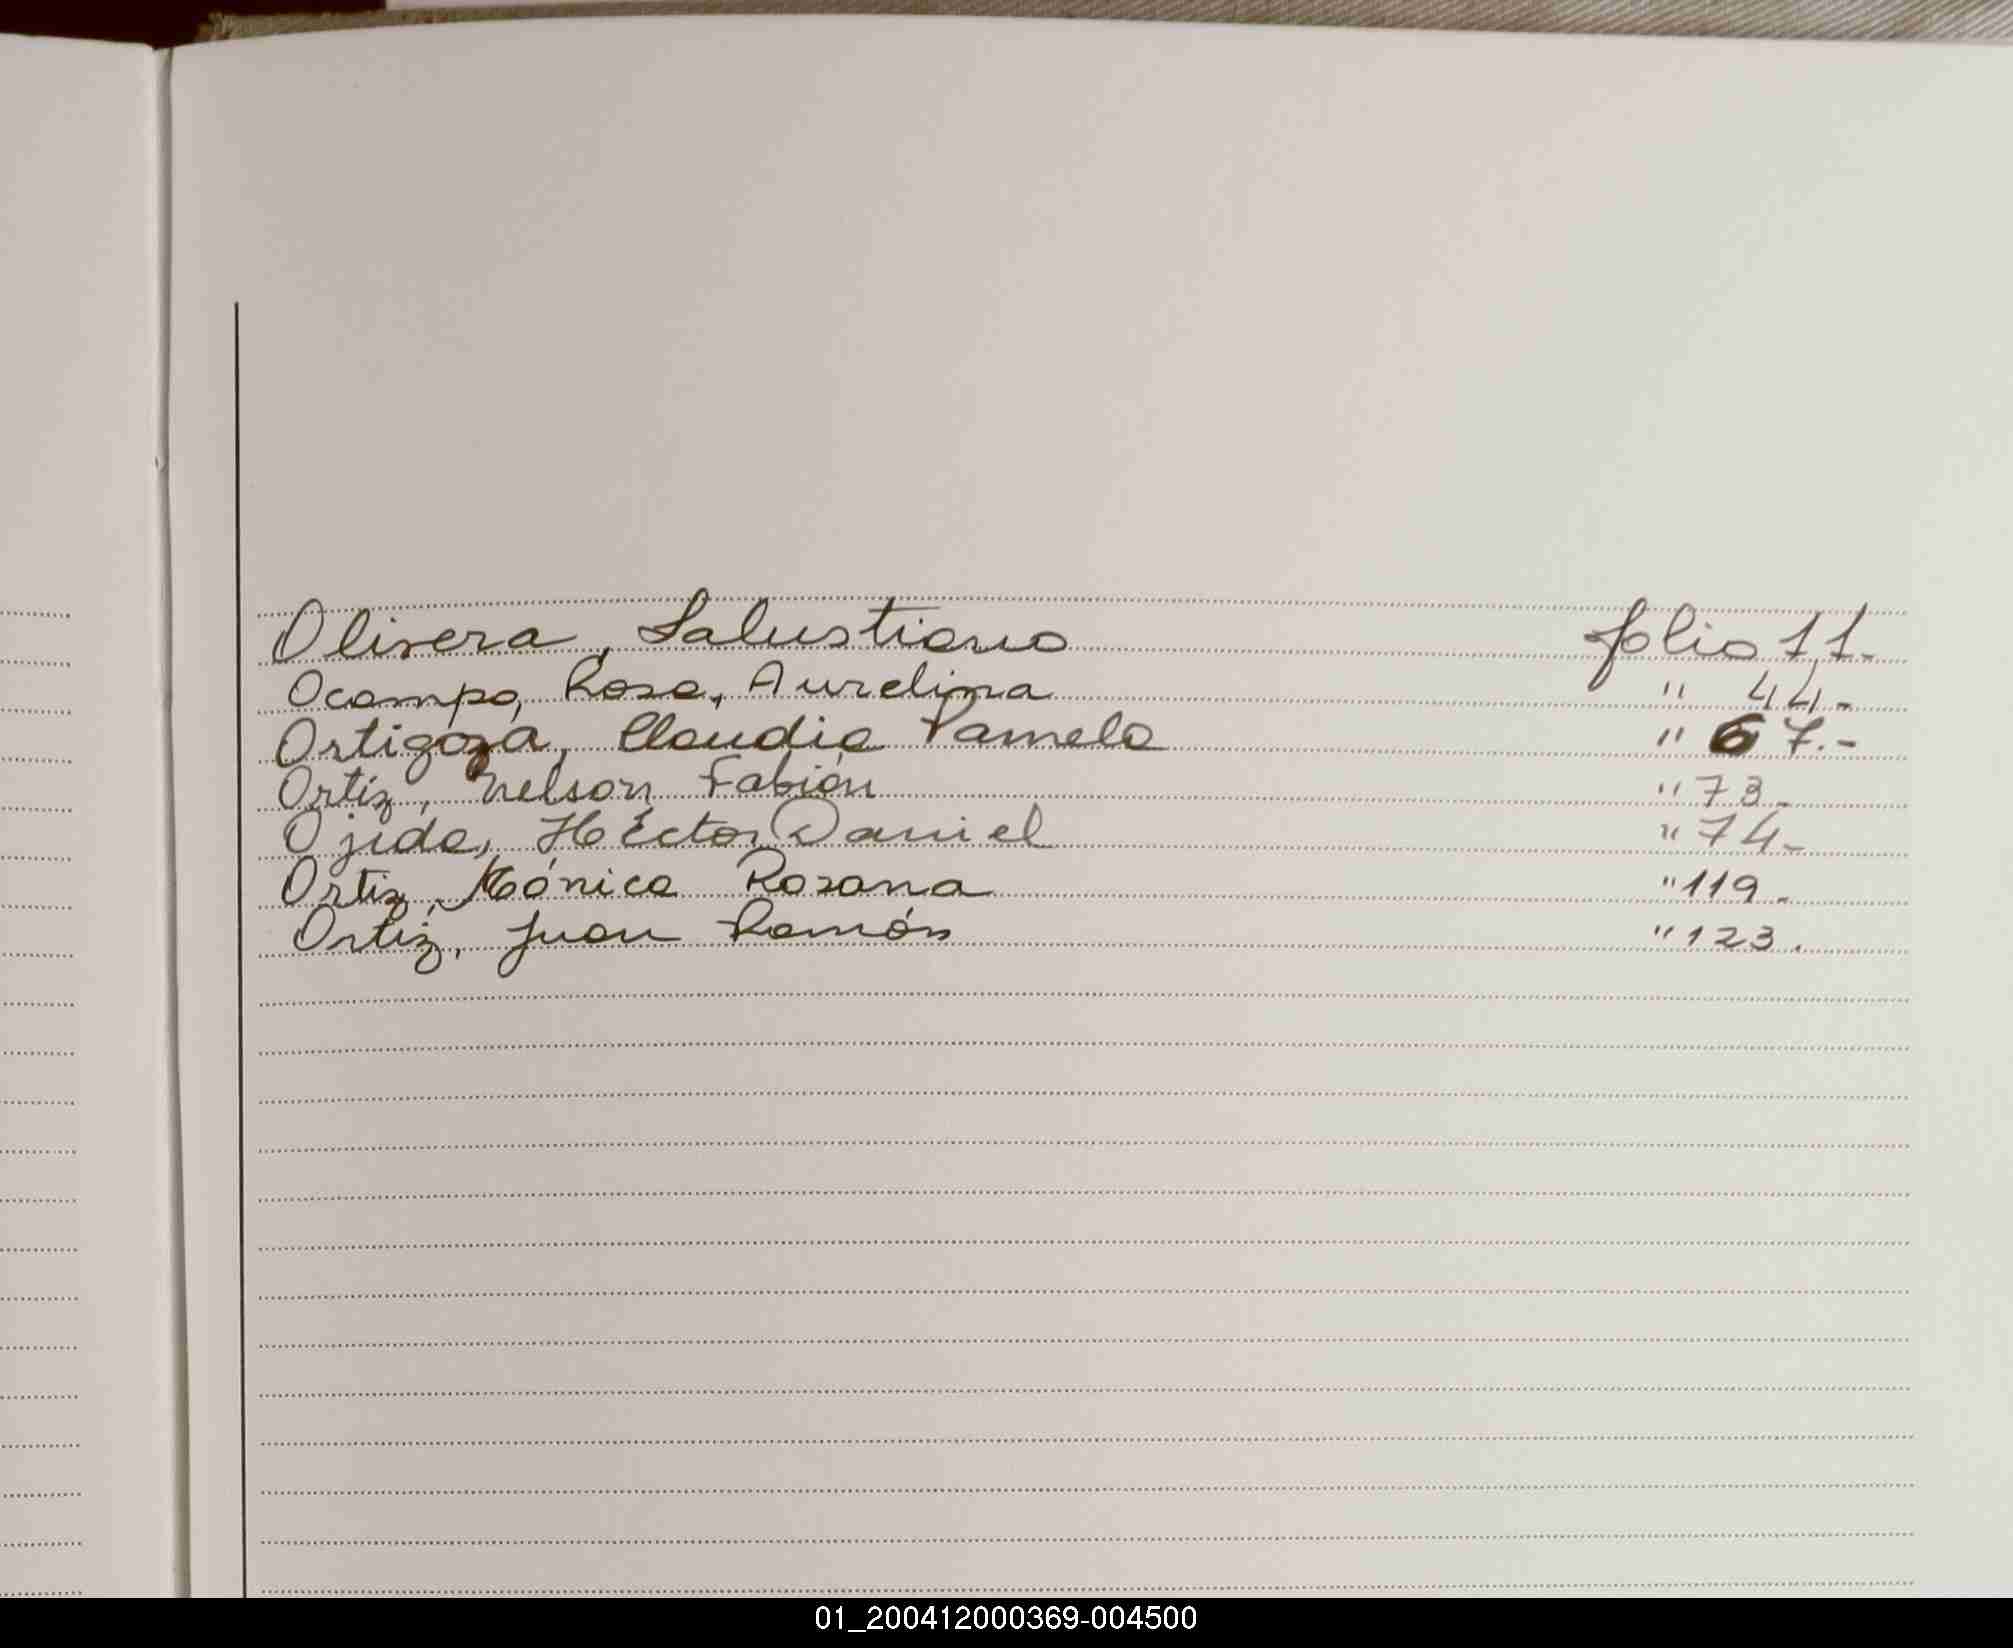 Olivera, Salustiano folio 11.-
Ocampo, Rosa, Aurelina " 44.-
Ortigoza, Claudia Pamela " 67.-
Ortiz, Nelson Fabián " 73.-
Ojeda, Héctor Daniel " 74.-
Ortiz, Mónica Rosana " 119.-
Ortiz, Juan Ramón " 123.
01_200412000369-004500